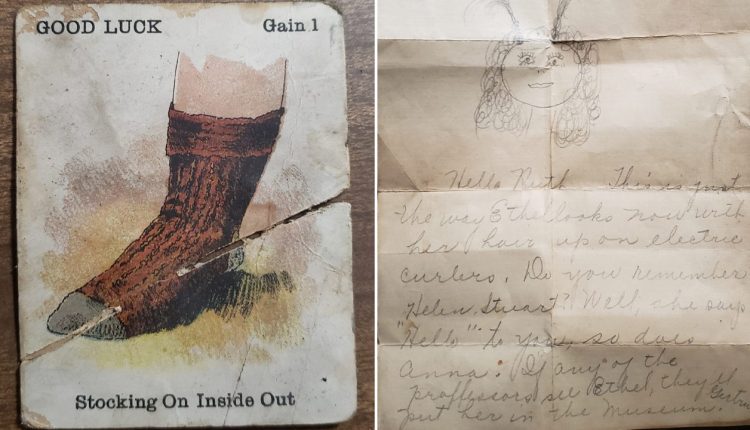 GOOD LUCK Gain 1
Stocking On Inside Out
Hello Ruth This is just
the way Ethel looks now with
her hair up on electric
curlers. Do you remember
Helen Stuart? Well, she says
"Hello" to you, so does
Anna. If any of the
proffessors see Ethel, they'll
put her in the Museum.